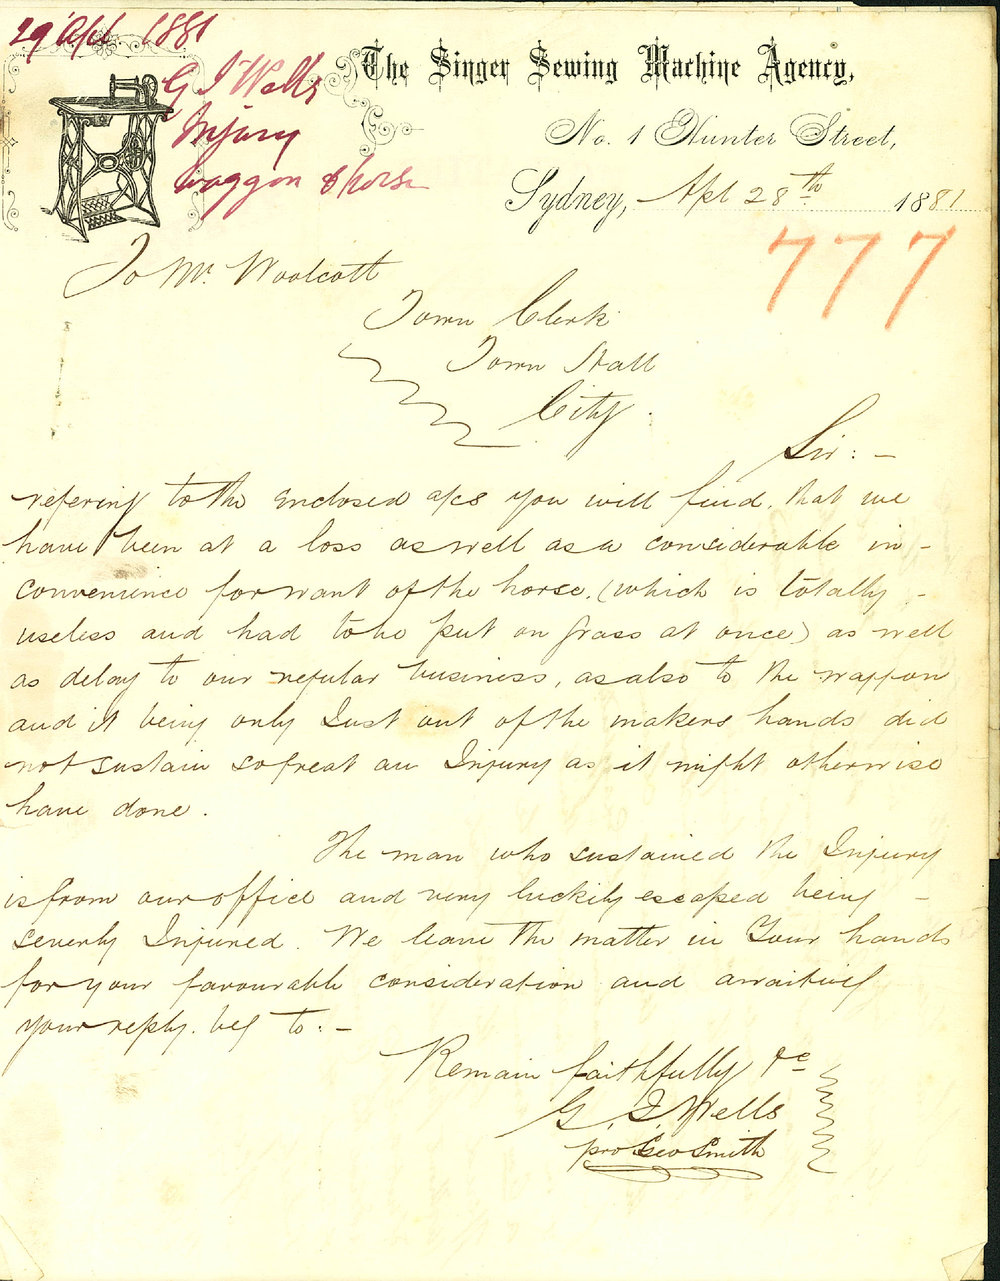 29 Apl. 1881
G I Wells
Injury
waggon & horse
The Singer Sewing Machine Agency,
No. 1 Hunter Street,
Sydney, Apl 28th 1881
777
To Mr. Woolcott
Town Clerk
Town Hall
City.
Sir: -
refering to the enclosed a/cs you will find, that we
have been at a loss as well as a considerable in -
convenience for want of the horse, (which is totally -
useless and had to be put on grass at once) as well
as delay to our regular business, as also to the waggon
and it being only Just out of the makers hands did
not sustain so great an Injury as it might otherwise
have done.
The man who sustained the Injury
is from our office and very luckily escaped being -
severly Injured. We leave the matter in Your hands
for your favourable consideration and awaiting
your reply. beg to: -
Remain faithfully &c
G. I. Wells
pro Geo Smith